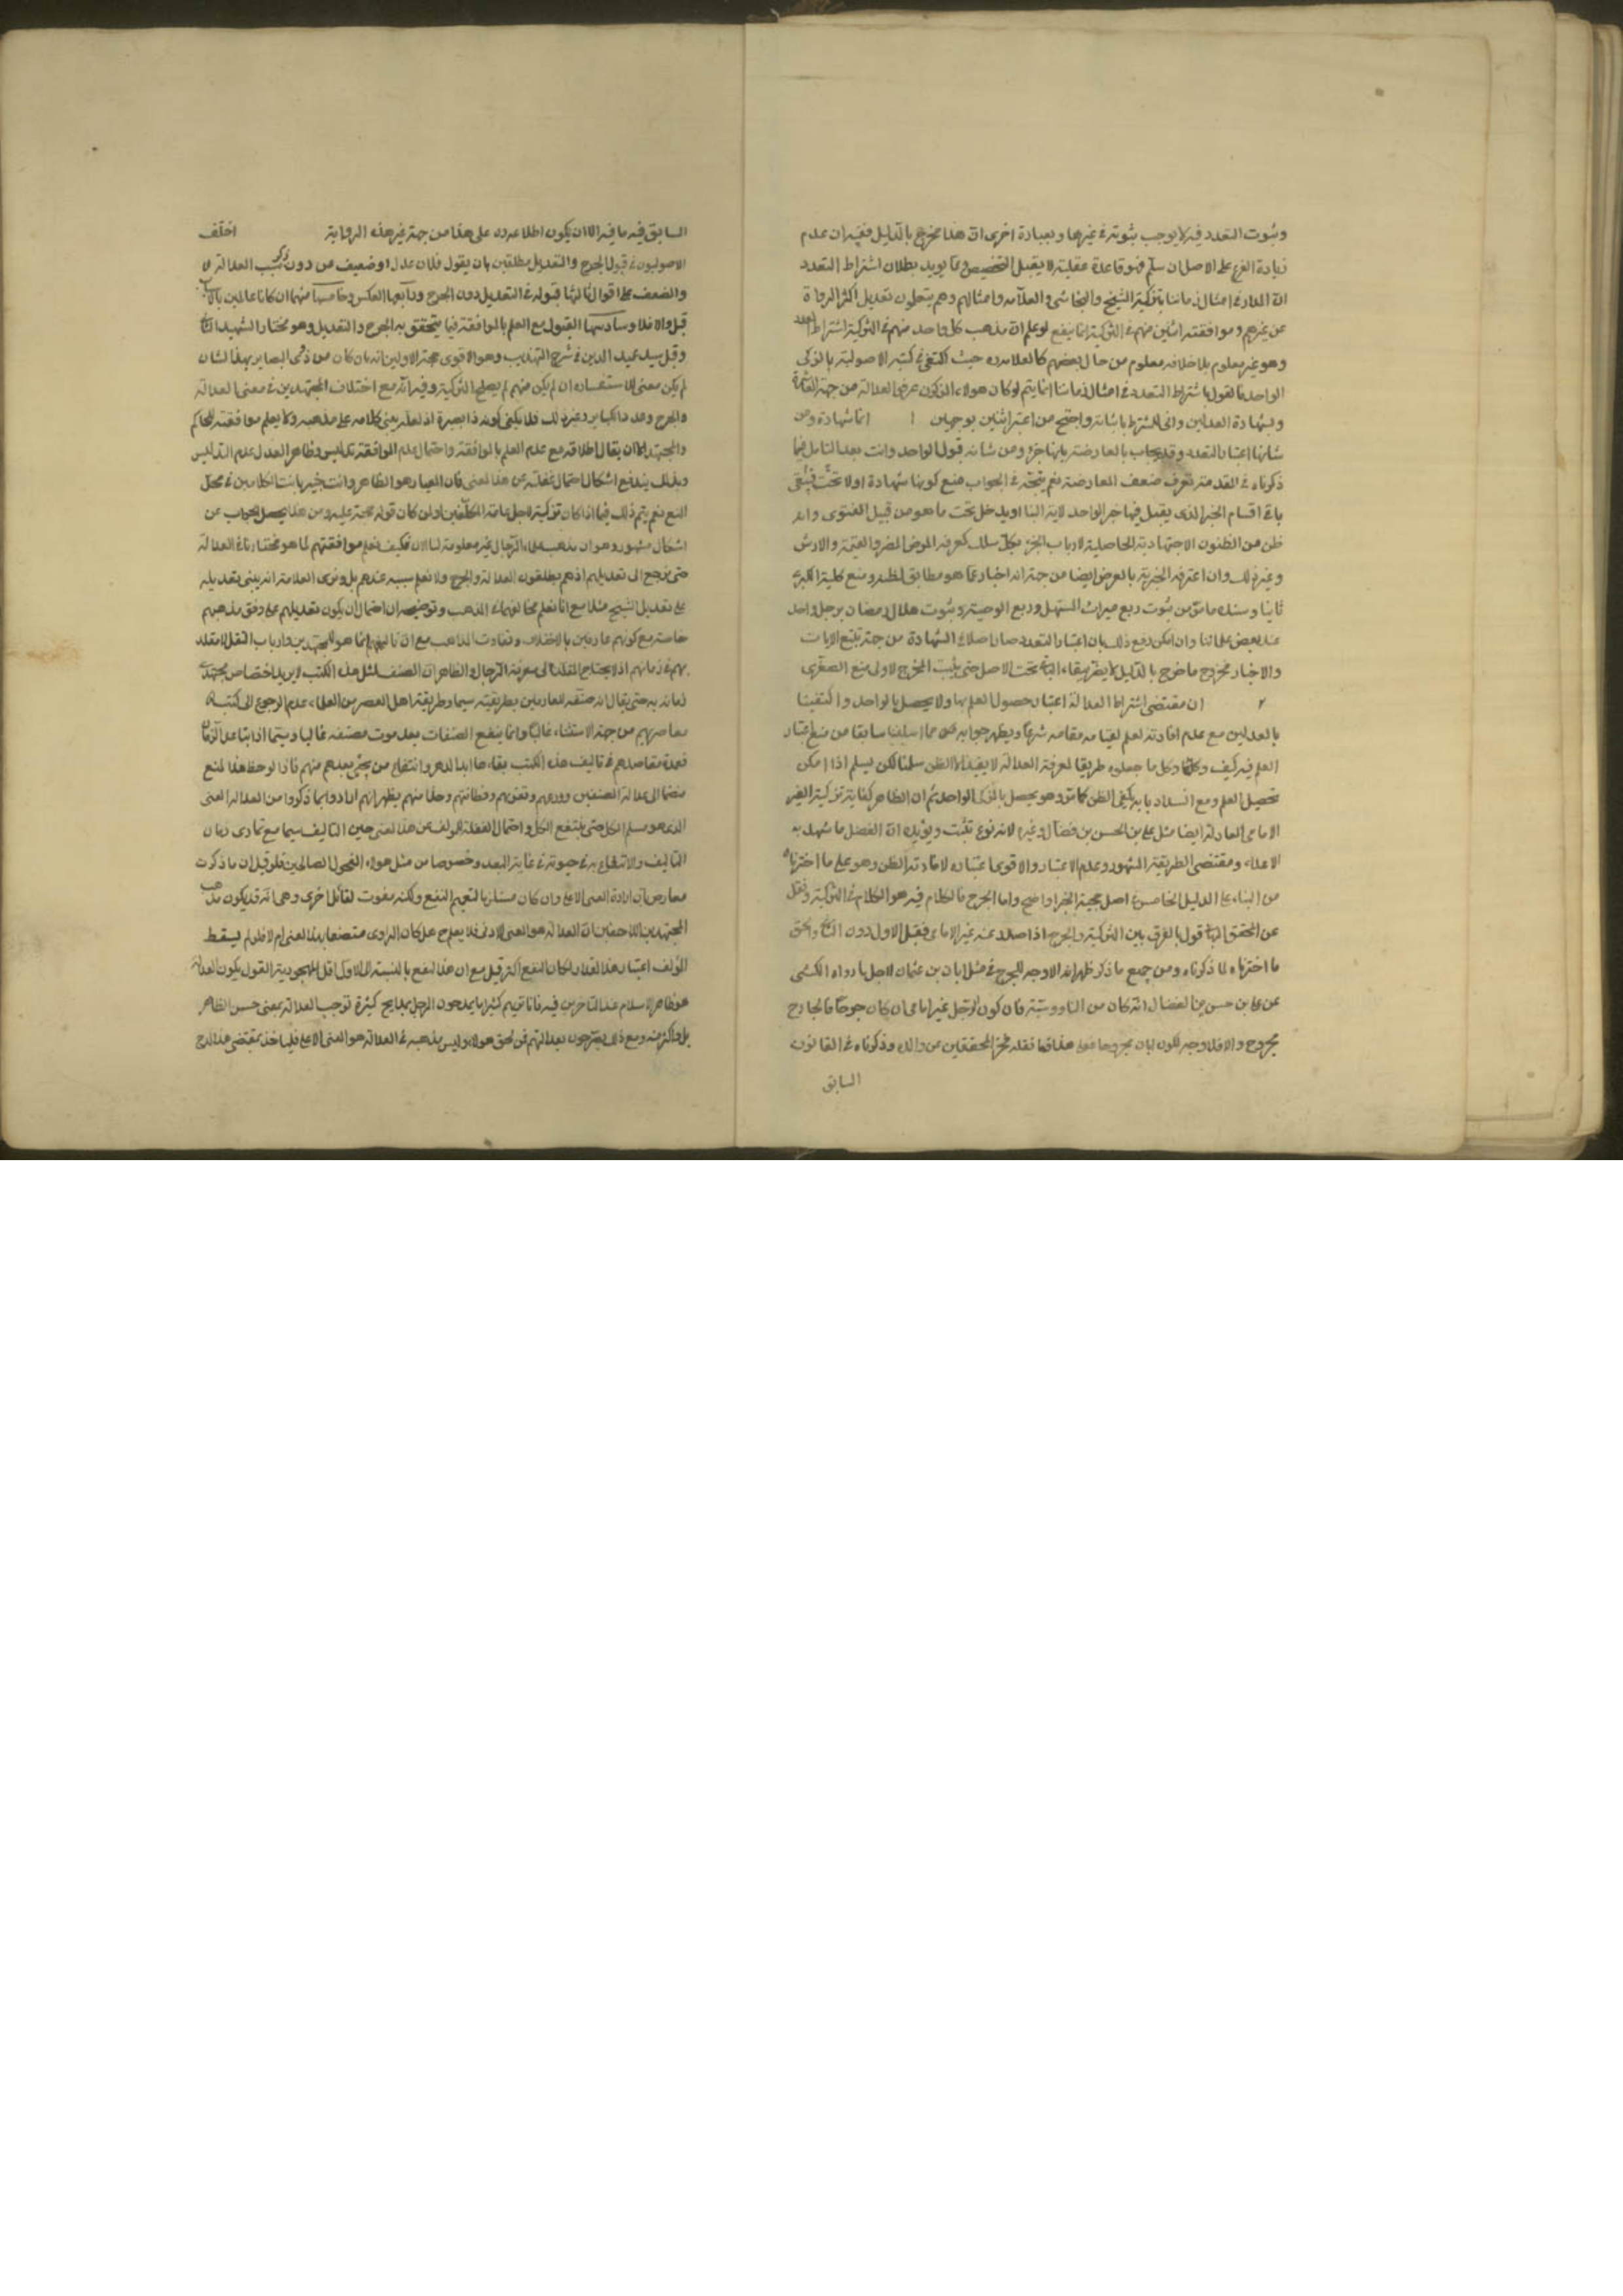 وثبوت التعدد فيه لا يوجب ثبوته في غيرها وبعبارة اخرى ان هذا مخرج بالدليل ففيه ان عدم
زيادة الفرع على الاصل ان سلم فهو قاعدة عقلية لا يقبل التخصيص ومما يويد بطلان اشتراط التعدد
ان المدار في امثال زماننا بتزكية الشيخ والنجاشي والعلامه وامثالهم وهم ينقلون تعديل اكثر الرواة
عن غيرهم وموافقته اثنين منهم في التزكية انما ينفع لو علم ان مذهب كل واحد منهم في التزكية اشتراط العدد
وهو غير معلوم بل خلافه معلوم من حال بعضهم كالعلامه ره حيث اكتفى في كتبه الاصولية بالمزكى
الواحد فالقول باشتراط التعدد في امثال زماننا انما يتم لو كان هولاء المزكون عرفوا العدالة من جهة
وشهادة العدلين واحتج من اعتبر اثنين بوجهين ١ انها شهادة ومن
شانها اعتبار التعدد وقد يجاب بالمعارضة بانها خبر ومن شانه قبول الواحد وانت بعد التامل فيما
ذكرناه في المقدمة تعرف ضعف المعارضة نعم يتجه في الجواب منع كونها شهادة
باقي اقسام الخبر الذي يقبل فيها خبر الواحد لاية النبا او يدخل تحت ما هو من قبيل الفتوى وانه
ظن من الظنون الاجتهادية الحاصلة لارباب الخبرة بكل مسلك كمعرفة المرض المضر والقيمة والارش
وغير ذلك وان اعترفه الخبرية بالعرض ايضا من جهة انه اخبار عما هو مطابق لظنه ومنع كلية الكبرى
ثانيا وسنده ما مر من ثبوت ربع ميراث المستهل وربع الوصية وثبوت هلال رمضان برجل واحد
عند بعض علمائنا وان امكن دفع ذلك بان اعتبار التعدد صار اصلا في الشهادة من جهة تتبع الايات
والاخبار فخروج ما خرج بالدليل لا يضر ببقاء الباقي تحت الاصل حتى يثبت المخرج فالاولى منع الصغرى
٢ ان مقتضى اشتراط العدالة اعتبار حصول العلم بها ولا يحصل بالواحد واكتفينا
بالعدلين مع عدم افادته العلم لقيامه مقامه شرعا ويظهر جوابه مما اسلفنا سابقا من منع اعتبار
العلم فيه كيف وكل ما جعلوه طريقا لمعرفة العدالة لا يفيد الا الظن سلمنا لكن يسلم اذا امكن
تحصيل العلم ومع انسداد بابه يكفى الظن كما مر وهو يحصل بالمزكى الواحد ثم ان الظاهر كفاية تزكية الغير
الامامي العادل ايضا مثل علي بن الحسن بن فضال وغيره لانه نوع تثبت ويؤيده ان الفضل ما شهد به
الاعداء ومقتضى الطريقة المشهورة عدم الاعتبار والاقوى اعتباره لافادته الظن وهو على ما اخترناه
من البناء على الدليل الخامس في اصل حجية الخبر اواضح واما الجرح فالكلام فيه هو الكلام في التزكية ونقل
عن المحقق البهائي قول بالفرق بين التزكية والجرح اذا صدر عنه غير الامامي فقبل الاول دون الثاني والحق
ما اخترناه لما ذكرناه ومن جميع ما ذكر ظهر انه لا وجه للجرح في مثل ابان بن عثمان لاجل ما رواه الكشي
عن علي بن حسن بن الفضال انه كان من الناووسية فان كون الرجل غير امامي ان كان جرحا فالجارح
مجروح والا فلا وجه لكون ابان مجروحا فعلى هذا فما نقله فخر المحققين عن والده وذكرناه في القانون
السابق
السابق فيه ما فيه الا ان يكون اطلاعه ره على هذا من جهة غير هذه الرواية اختلف
الاصوليون في قبول الجرح والتعديل مطلقين بان يقول فلان عدل او ضعيف من دون ذكر سبب العدالة
والضعف على اقوال ثالثها قبوله في التعديل دون الجرح ورابعها العكس وخامسها منهما ان كانا عالمين بالاسباب
قبل والا فلا وسادسها القبول مع العلم بالموافقة فيما يتحقق به الجرح والتعديل وهو مختار الشهيد الثاني
وقبل سيد عميد الدين في شرح التهذيب وهو الاقوى حجة الاولين انه ان كان من ذوى البصاير بهذا الشان
لم يكن معنى للاستفسار وان لم يكن منهم لم يصلح للتزكية وفيه انه مع اختلاف المجتهدين في معنى العدالة
والجرح وعدد الكباير وغير ذلك فلا يكفى كونه ذا بصيرة اذ لعله يبنى كلامه على مذهبه ولا يعلم موافقته للحاكم
والمجتهد الا ان يقال اطلاقه مع عدم العلم بالموافقة واحتمال عدم الموافقة تدليس وظاهر العدل عدم التدليس
وبذلك يندفع اشكال احتمال غفلته عن هذا المعنى فان المعيار هو الظاهر وانت خبير بان الكلامين في محل
المنع نعم يتم ذلك فيما اذا كان تزكيته لاجل عامة المكلفين او لمن كان قوله حجة عليه ومن هنا يحصل الجواب عن
اشكال مشهور وهو ان مذهب علماء الرجال غير معلوم لنا الان فكيف نعلم موافقتهم لما هو مختارنا في العدالة
حتى نرجع الى تعديلهم اذ هم يطلقون العدالة والجرح ولا نعلم سببه عندهم بل ونرى العلامة انه يبنى تعديله
على تعديل الشيخ مثلا مع انا نعلم مخالفتهما في المذهب وتوضيحه ان احتمال ان يكون تعديلهم على وفق مذهبهم
خاصة مع كونهم عارفين بالاختلاف وتفاوت المذاهب مع ان تاليفهم انما هو للمجتهدين وارباب النظر لا مقلد
بهم في زمانهم اذ لا يحتاج المقلد الى معرفة الرجال والظاهر ان المصنف لمثل هذه الكتب لا يريد اختصاص مجتهدي
زمانه به حتى يقال انه صنفه للعارفين بطريقته سيما وطريقة اهل العصر من العلماء عدم الرجوع الى كتب
معاصريهم من جهة الاستثناء غالبا وانما ينفع المصنفات بعد موت مصنفه غالبا وسيما اذا تباعد الزمان
فعمدة مقاصدهم في تاليف هذه الكتب بقاءها ابد الدهر وانتفاع من يجيء بعدهم منهم فاذا لوحظ هذا المنع
منضما الى عدالة المصنفين وورعهم وتقويهم وفطانتهم وحذاقتهم يظهر انهم ارادوا بما ذكروا من العدالة المعنى
الذي هو مسلم الكل حتى ينتفع الكل واحتمال الغفلة للمولف عن هذا المعنى حين التاليف سيما مع تمادى زمان
التاليف والانتفاع به في حيوته في غاية البعد وخصوصا من مثل هولاء الفحول الصالحين فلو قيل ان ما ذكرت
معارض بان ارادة المعنى الاعلى وان كان مستلزما لتعميم النفع ولكنه مفوت لفائدة اخرى وهي انه قد يكون مذهب
المجتهدين اللاحقين ان العدالة هو المعنى الادنى فلا يعلم ح هل كان الراوى متصفا بهذا المعنى ام لا فلو لم يسقط
المؤلف اعتبار هذا المقدار لكان النفع اكثر قيل مع ان هذا النفع بالنسبة الى الاول اقل لمهجورية القول بكون العدالة
هو ظاهر الاسلام عند المتاخرين فيه فانا نريهم كثيرا ما يمدحون الرجل بمدايح كثيرة توجب العدالة بمعنى حسن الظاهر
بل واكثر منه ومع ذلك لا يصرحون بعدالتهم فمن لحق هولاء وليس مذهبه في العدالة هو المعنى الاعلى فلياخذ بمقتضى هذا المدح